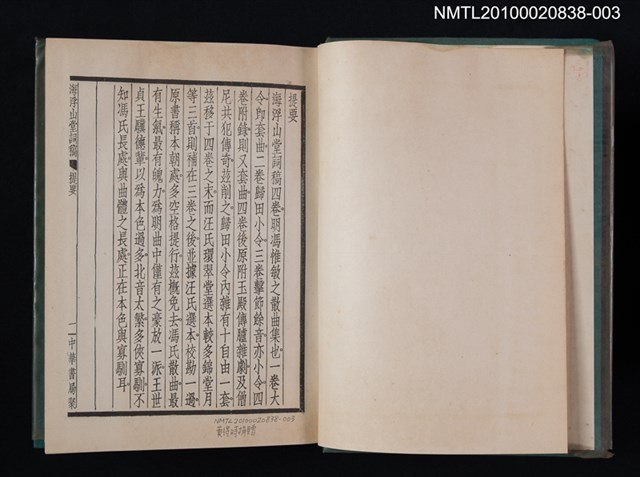 NMTL20100020838-003
提要
海浮山堂詞稿四卷明馮惟敏之散曲集也一卷大
令即套曲二卷歸田小令三卷擊節餘音亦小令四
卷附錄則又套曲四卷後原附玉殿傳臚雜劇及僧
尼共犯傳奇茲削之歸田小令內雜有十自由一套
茲移于四卷之末而汪氏環翠堂選本較多錦堂月
等三首則補在三卷之後並據汪氏選本校勘一過
原書稱本朝處多空格提行茲概免去馮氏散曲最
有生氣最有魄力爲明曲中僅有之豪放一派王世
貞王驥德輩以爲本色過多北音太繁多俠寡馴不
知馮氏長處與曲體之長處正在本色與寡馴耳
海浮山堂詞稿 提要
一 中華書局聚
NMTL20100020838-003